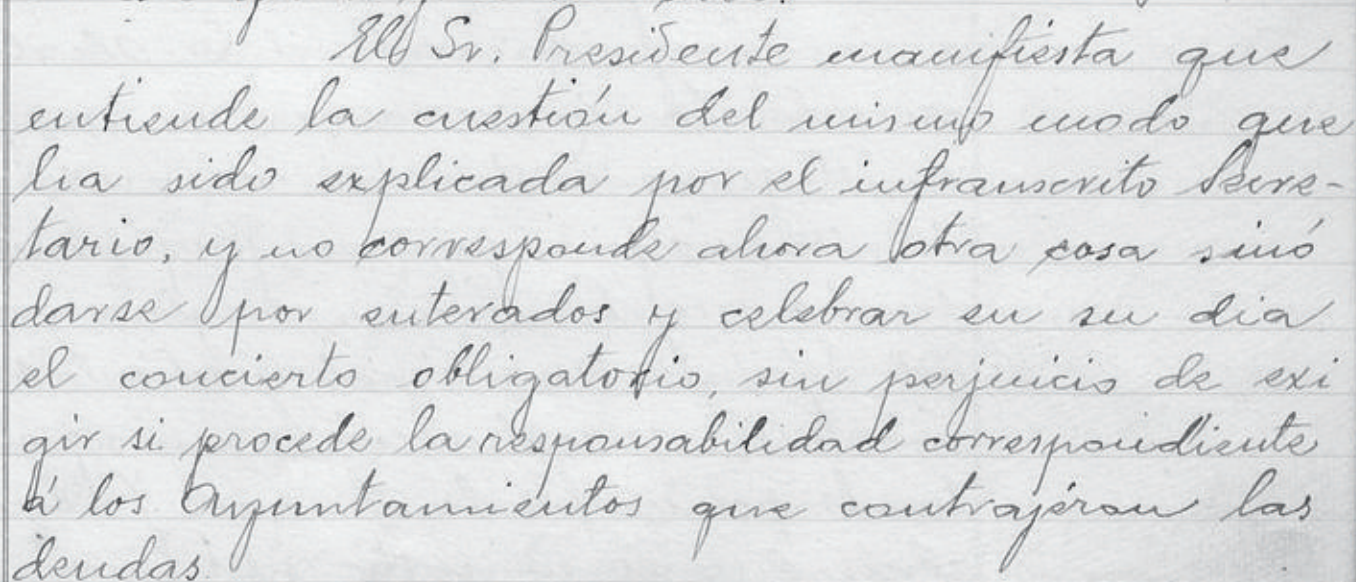 El Sr. Presidente manifiesta que
entiende la cuestión del mismo modo que
ha sido explicada por el infranscrito Secre-
tario, y no corresponde ahora otra cosa sinó
darse por enterados y celebrar en su dia
el concierto obligatorio, sin perjuicio de exi
gir si procede la responsabilidad correspondiente
á los Ayuntamientos que contrajéron las
deudas